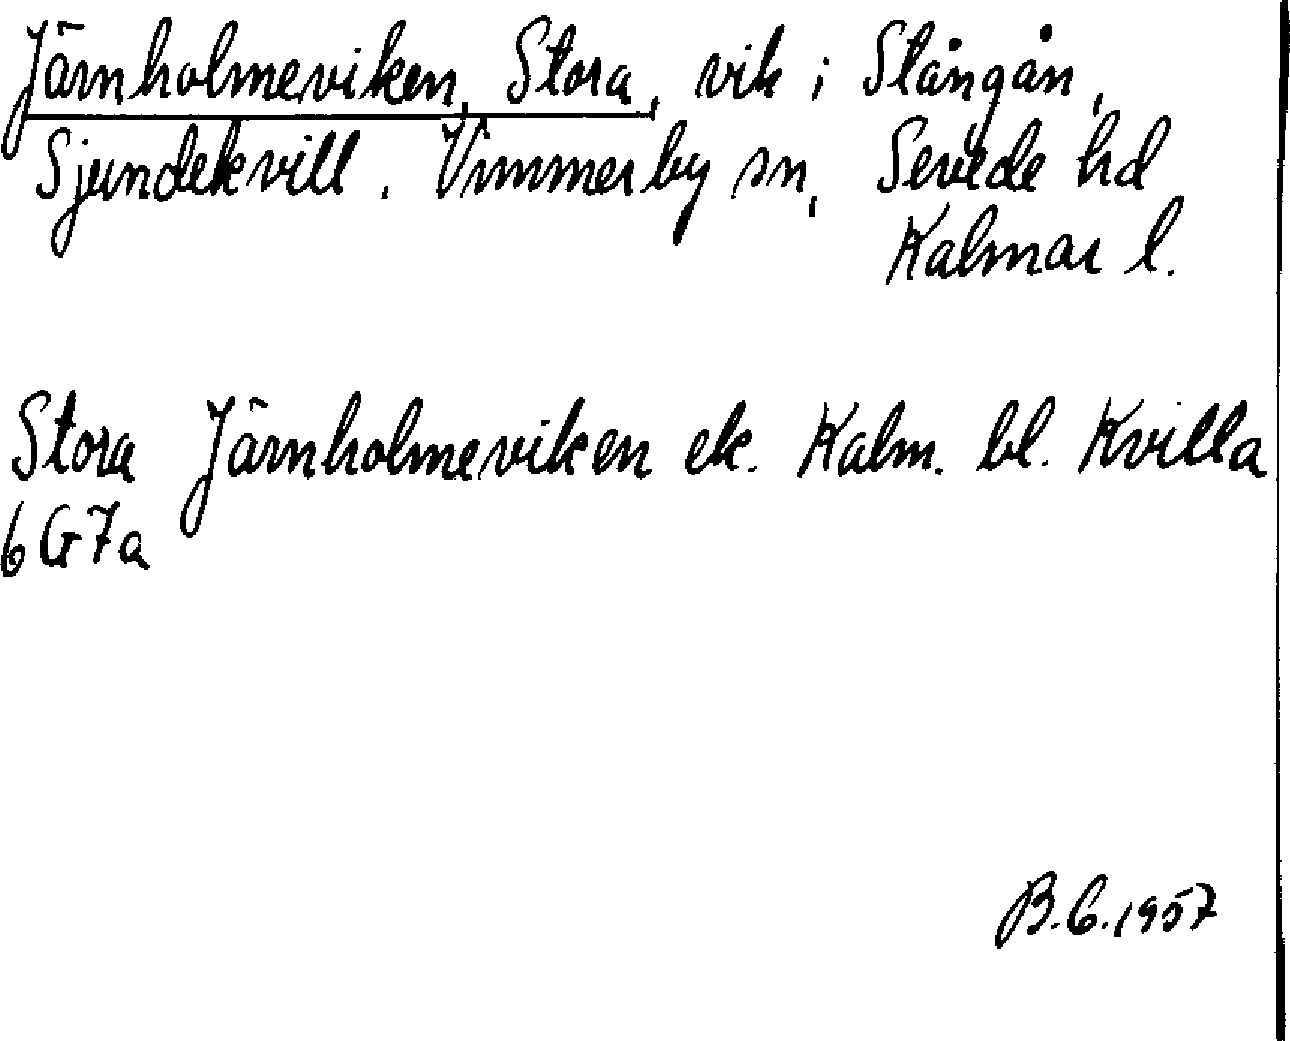 Järnholmeviken, Stora, vik i Stångån,
Sjundekvill. Vimmerby sn, Sevede hd
Kalmar l.
Stora Järnholmeviken ek. Kalm. bl. Kvilla
6G7a
B.G.1957